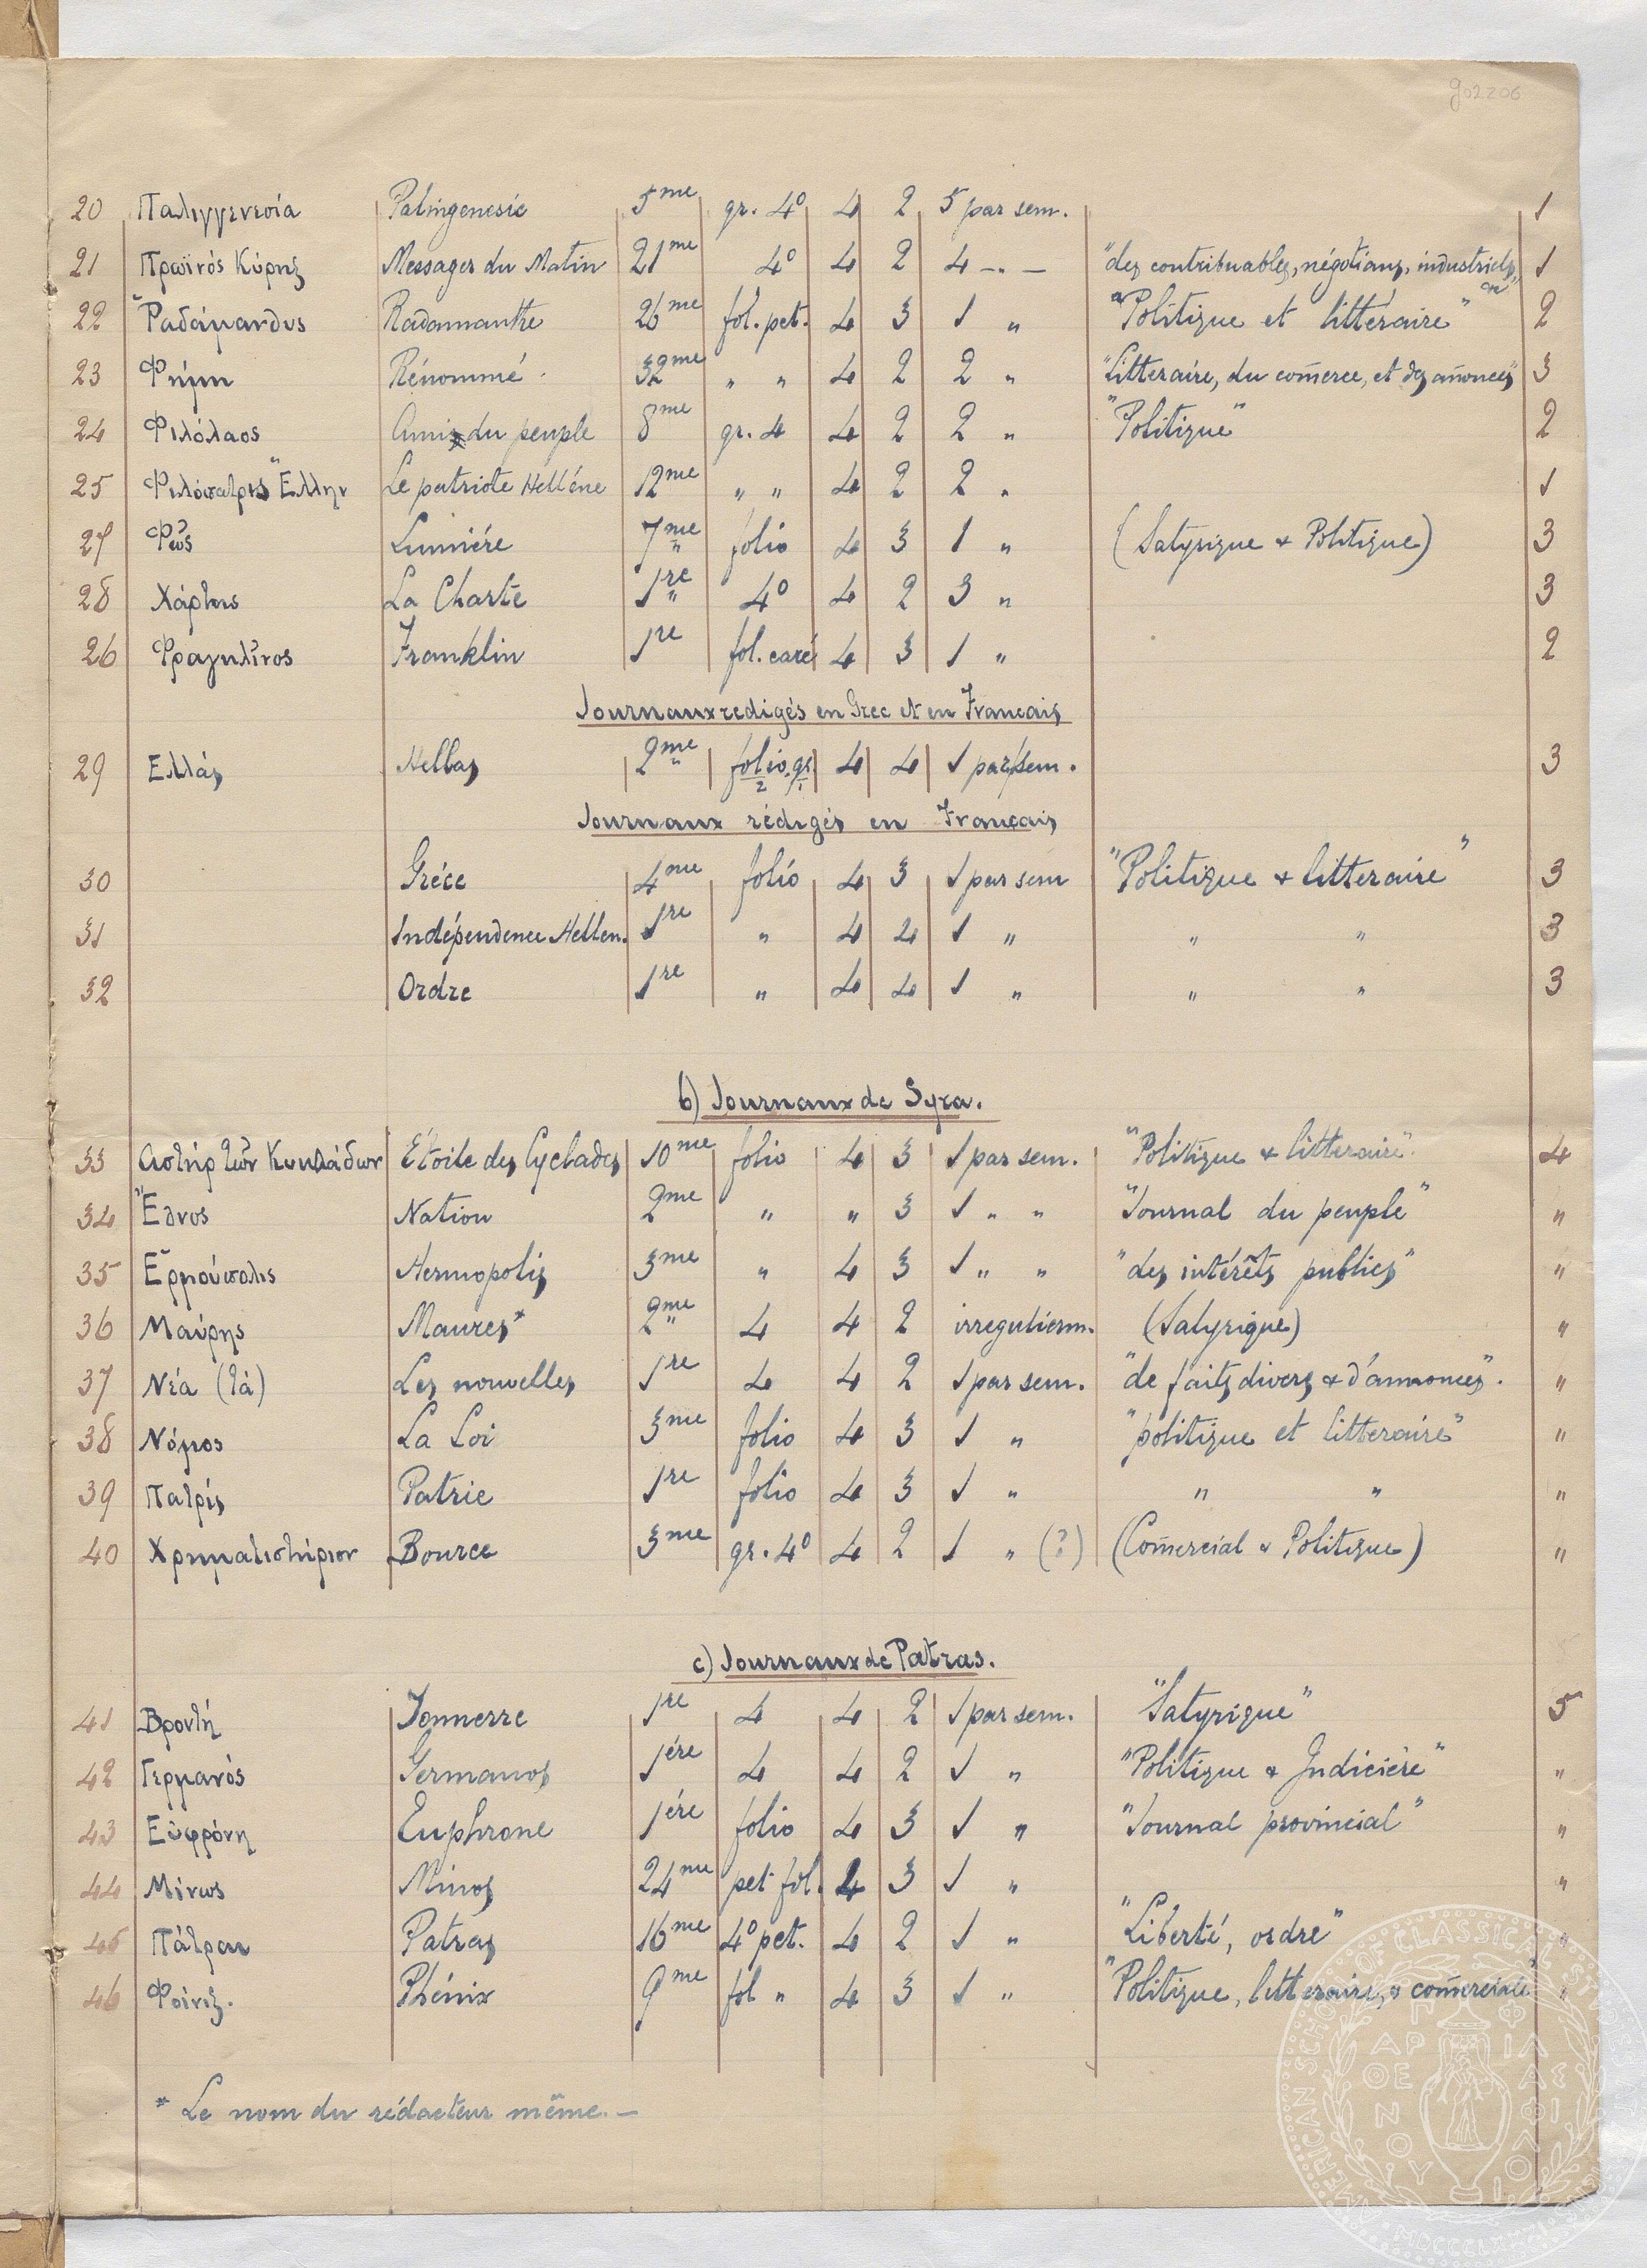 g02206
20 Παλιγγενεσία Palingenesie 5me gr. 4º 4 2 5 par sem. 1
21 Πρωϊνός Κύρηξ Messager du Matin 21me 4º 4 2 4 -„- "des contribuables, négotians, industriels, 1
22 Ῥαδάμανθυς Radamanthe 26me fol. pet. 4 3 1 „ "Politique et littéraire" 2
23 Φήμη Rénommé. 32me „ „ 4 2 2 „ "Litteraire, du com̄erce, et des an̄onces" 3
24 Φιλόλαος Ami du peuple 8me gr. 4 4 2 2 „ "Politique" 2
25 Φιλόπατρις Ἕλλην Le patriote Helléne 12me „ „ 4 2 2 „ 1
27 Φῶς Lumiére 7me folio 4 3 1 „ (Satyrique & Politique) 3
28 Χάρτης La Charte 1re 4º 4 2 3 „ 3
26 Φραγκλῖνος Franklin 1re fol. caré 4 3 1 „ 2
Journaux redigés en Grec et en Francais
29 Ελλάς Hellas 2me folio gr. 4 4 1 par sem. 3
2 1
Journaux rédigés en Français
30 Gréce 4me folio 4 3 1 par sem "Politique & litteraire" 3
31 Indépendence Hellen. 1re „ 4 4 1 „ „ „ 3
32 Ordre 1re „ 4 4 1 „ „ „ 3
b) Journaux de Syra.
33 Αστὴρ τῶν Κυκλάδων Étoile des Cyclades 10me folio 4 3 1 par sem. "Politique & litteraire". 4
34 Ἔθνος Nation 2me „ „ 3 1 „ „ "Journal du peuple" „
35 Ἑρμούπολις Hermopolis 3me „ 4 3 1 „ „ "des intérêts publics" „
36 Μαύρης Maures* 2me 4 4 2 irregulierm. (Satyrique) „
37 Νέα (τὰ) Les nouvelles 1re 4 4 2 1 par sem. "de faits divers & d'annonces". „
38 Νόμος La Loi 3me folio 4 3 1 „ "politique et litteraire" „
39 Πατρίς Patrie 1re folio 4 3 1 „ „ „ „
40 Χρηματιστήριον Bource 3me gr. 4º 4 2 1 „ (?) (Com̄ercial & Politique) „
c) Journaux de Patras.
41 Βροντή Tonnerre 1re 4 4 2 1 par sem. "Satyrique" 5
42 Γερμανός Germanos 1ére 4 4 2 1 „ "Politique & Judiciére" „
43 Εὐφρόνη Euphrone 1ére folio 4 3 1 „ "Journal provincial" „
44 Μίνως Minos 24me pet fol. 4 3 1 „ „
45 Πάτραι Patras 16me 4º pet. 4 2 1 „ "Liberté, ordre" „
46 Φοίνιξ. Phénix 9me fol „ 4 3 1 „ "Politique, litteraire, & com̄erciale" „
* Le nom du rédacteur même. —
AMERICAN SCHOOL OF CLASSICAL STUDIES AT
ΠΑΡΘΕΝΟΥ ΦΙΛΑΣ ΦΙΛΟΙ
MDCCCLXXXI